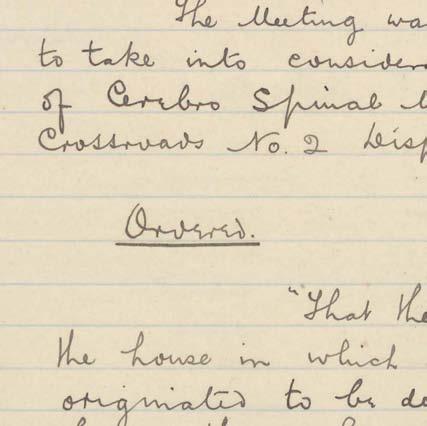 The Meeting wa
to take into consider
of Cerebro Spinal
Crossroads No. 2 Disp
Ordered.
"That the
the house in which
originated to be de